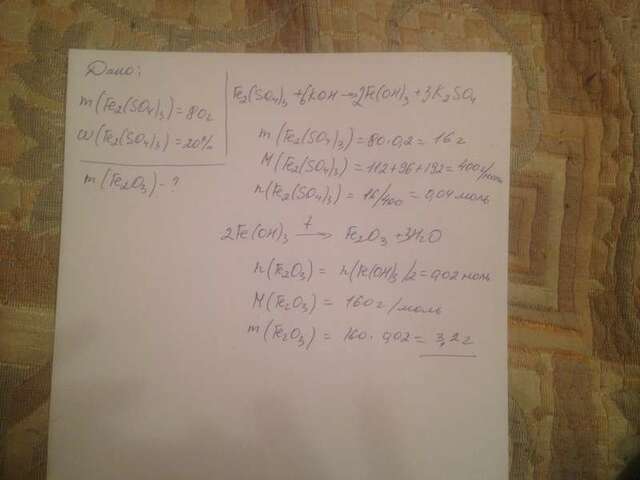 Дано:
m(Fe₂(SO₄)₃)=80г
ω(Fe₂(SO₄)₃)=20%
m(Fe₂O₃)-?
Fe₂(SO₄)₃+6KOH→2Fe(OH)₃+3K₂SO₄
m(Fe₂(SO₄)₃)=80·0,2=16г
M(Fe₂(SO₄)₃)=112+96+192=400г/моль
n(Fe₂(SO₄)₃)=16/400=0,04моль
2Fe(OH)₃ t→ Fe₂O₃+3H₂O
n(Fe₂O₃)=n(Fe(OH)₃)/2=0,02моль
M(Fe₂O₃)=160г/моль
m(Fe₂O₃)=160·0,02=3,2г